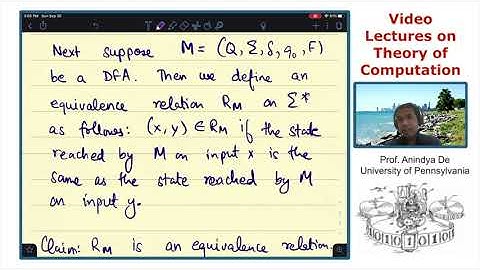 3:03 PM Sun Sep 20
Next suppose M = (Q, Σ, δ, q₀, F)
be a DFA. Then we define an
equivalence relation R_M on Σ*
as follows: (x, y) ∈ R_M if the state
reached by M on input x is the
same as the state reached by M
on input y.
Claim: R_M is an equivalence relation.
Video
Lectures on
Theory of
Computation
Prof. Anindya De
University of Pennsylvania
1010101